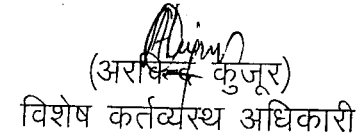 (अरविन्द कुजूर)
विशेष कर्तव्यस्थ अधिकारी